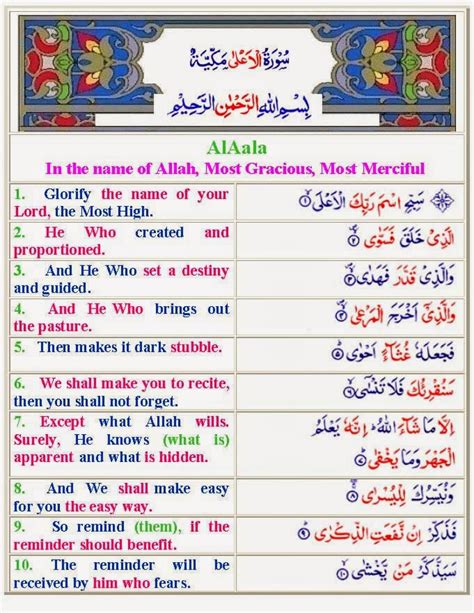 سُوْرَةُ الْاَعْلٰى مَكِّيَّة
بِسْمِ اللهِ الرَّحْمٰنِ الرَّحِيْمِ
AlAala
In the name of Allah, Most Gracious, Most Merciful
1. Glorify the name of your
Lord, the Most High.
سَبِّحِ اسْمَ رَبِّكَ الْاَعْلَىۙ ۱
2. He Who created and
proportioned.
الَّذِىْ خَلَقَ فَسَوّٰى ۲
3. And He Who set a destiny
and guided.
وَالَّذِىْ قَدَّرَ فَهَدٰى ۳
4. And He Who brings out
the pasture.
وَالَّذِىْٓ اَخْرَجَ الْمَرْعٰى ۴
5. Then makes it dark stubble.
فَجَعَلَهٗ غُثَآءً اَحْوٰى ۵
6. We shall make you to recite,
then you shall not forget.
سَنُقْرِئُكَ فَلَا تَنْسٰٓى ۶
7. Except what Allah wills.
Surely, He knows (what is)
apparent and what is hidden.
اِلَّا مَا شَآءَ اللهُ اِنَّهٗ يَعْلَمُ
الْجَهْرَ وَمَا يَخْفٰى ۷
8. And We shall make easy
for you the easy way.
وَنُيَسِّرُكَ لِلْيُسْرٰى ۸
9. So remind (them), if the
reminder should benefit.
فَذَكِّرْ اِنْ نَّفَعَتِ الذِّكْرٰى ۹
10. The reminder will be
received by him who fears.
سَيَذَّكَّرُ مَنْ يَّخْشٰى ۱۰